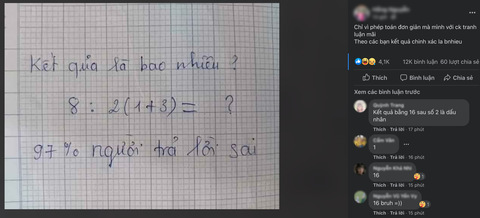 Kết quả là bao nhiêu ?
8 : 2(1+3) = ?
97% người trả lời sai
Chỉ vì phép toán đơn giản mà mình với ck tranh
luận mãi
Theo các bạn kết quả chính xác la bnhieu
4,1K 12K bình luận 60 lượt chia sẻ
Thích Bình luận Chia sẻ
Xem các bình luận trước
Quỳnh Trang
Kết quả bằng 16 sau số 2 là dấu
nhân
Thích Trả lời 17 phút
1
Thích Trả lời 16 phút
16
Thích Trả lời 15 phút
16 bruh =))
Thích Trả lời